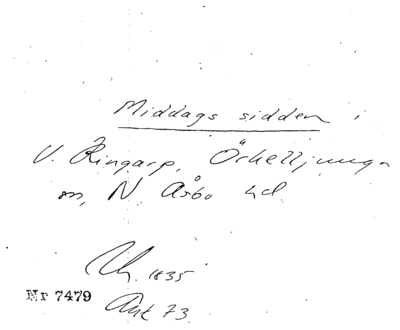 Middags sidden i
V. Ringarp, Örkelljunga
sn, N Åsbo hd.
Uh. 1835
Nr 7479
Ark 73